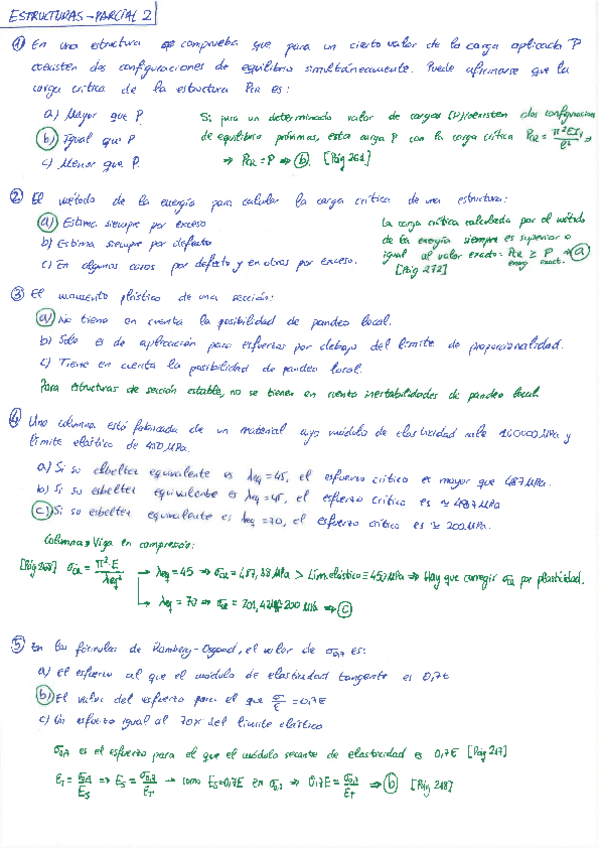 ESTRUCTURAS - PARCIAL 2
① En una estructura se comprueba que para un cierto valor de la carga aplicada P
coexisten dos configuraciones de equilibrio simultáneamente. Puede afirmarse que la
carga crítica de la estructura PCR es:
a) Mayor que P.
b) Igual que P
c) Menor que P.
Si para un determinado valor de cargas (P) coexisten dos configuraciones
de equilibrio próximas, esta carga P con la carga crítica PCR = π²EI/l² ⇒
⇒ PCR = P ⇒ ⓑ. [Pág 261]
② El método de la energía para calcular la carga crítica de una estructura:
a) Estima siempre por exceso
b) Estima siempre por defecto
c) En algunos casos por defecto y en otros por exceso.
La carga crítica calculada por el método
de la energía siempre es superior o
igual al valor exacto: PCR energ ≥ P exact. ⇒ ⓐ
[Pág 272]
③ El momento plástico de una sección:
a) No tiene en cuenta la posibilidad de pandeo local.
b) Solo es de aplicación para esfuerzos por debajo del límite de proporcionalidad.
c) Tiene en cuenta la posibilidad de pandeo local.
Para estructuras de sección estable, no se tienen en cuenta inestabilidades de pandeo local
④ Una columna está fabricada de un material cuyo módulo de elasticidad vale 100000 MPa y
límite elástico de 450 MPa.
a) Si su esbeltez equivalente es λeq = 45, el esfuerzo crítico es mayor que 487 MPa.
b) Si su esbeltez equivalente es λeq = 45, el esfuerzo crítico es ≃ 487 MPa
c) Si su esbeltez equivalente es λeq = 70, el esfuerzo crítico es ≃ 200 MPa.
Columna ⇒ Viga en compresión:
[Pág 268] σCR = π²·E/λeq² → λeq = 45 ⇒ σCR = 487,38 MPa > Lím. elástico = 450 MPa ⇒ Hay que corregir σCR por plasticidad.
↳ λeq = 70 ⇒ σCR = 201,42 ≃ 200 MPa ⇒ ⓒ
⑤ En las fórmulas de Ramberg-Osgood, el valor de σ0,7 es:
a) El esfuerzo al que el módulo de elasticidad tangente es 0,7E
b) El valor del esfuerzo para el que σ/ε = 0,7E
c) Un esfuerzo igual al 70% del límite elástico
σ0,7 es el esfuerzo para el que el módulo secante de elasticidad es 0,7E [Pág 217]
⇒ ⓑ [Pág 218]